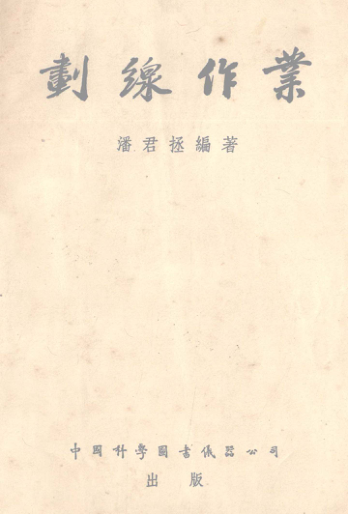 劃線作業
潘君拯編著
中國科學圖書儀器公司
出版